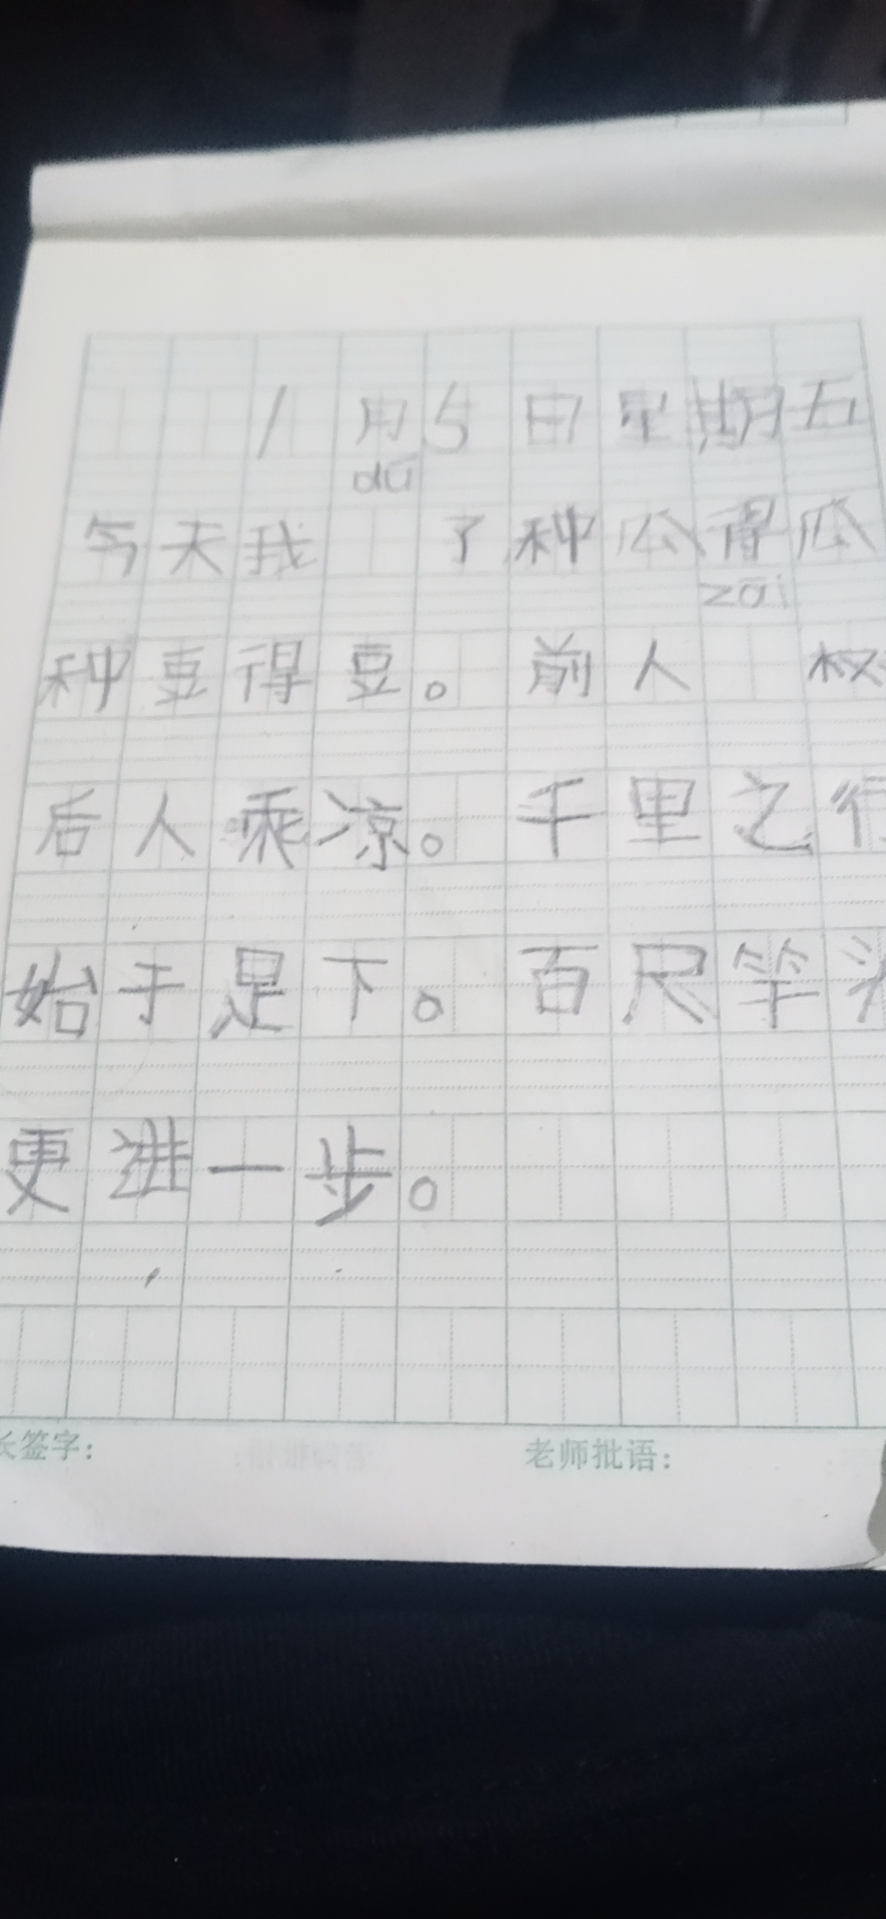 1月5日星期五
dú
今天我 了种瓜得瓜
zāi
种豆得豆。前人 权
后人乘凉。千里之行
始于足下。百尺竿头
更进一步。
长签字: 老师批语: